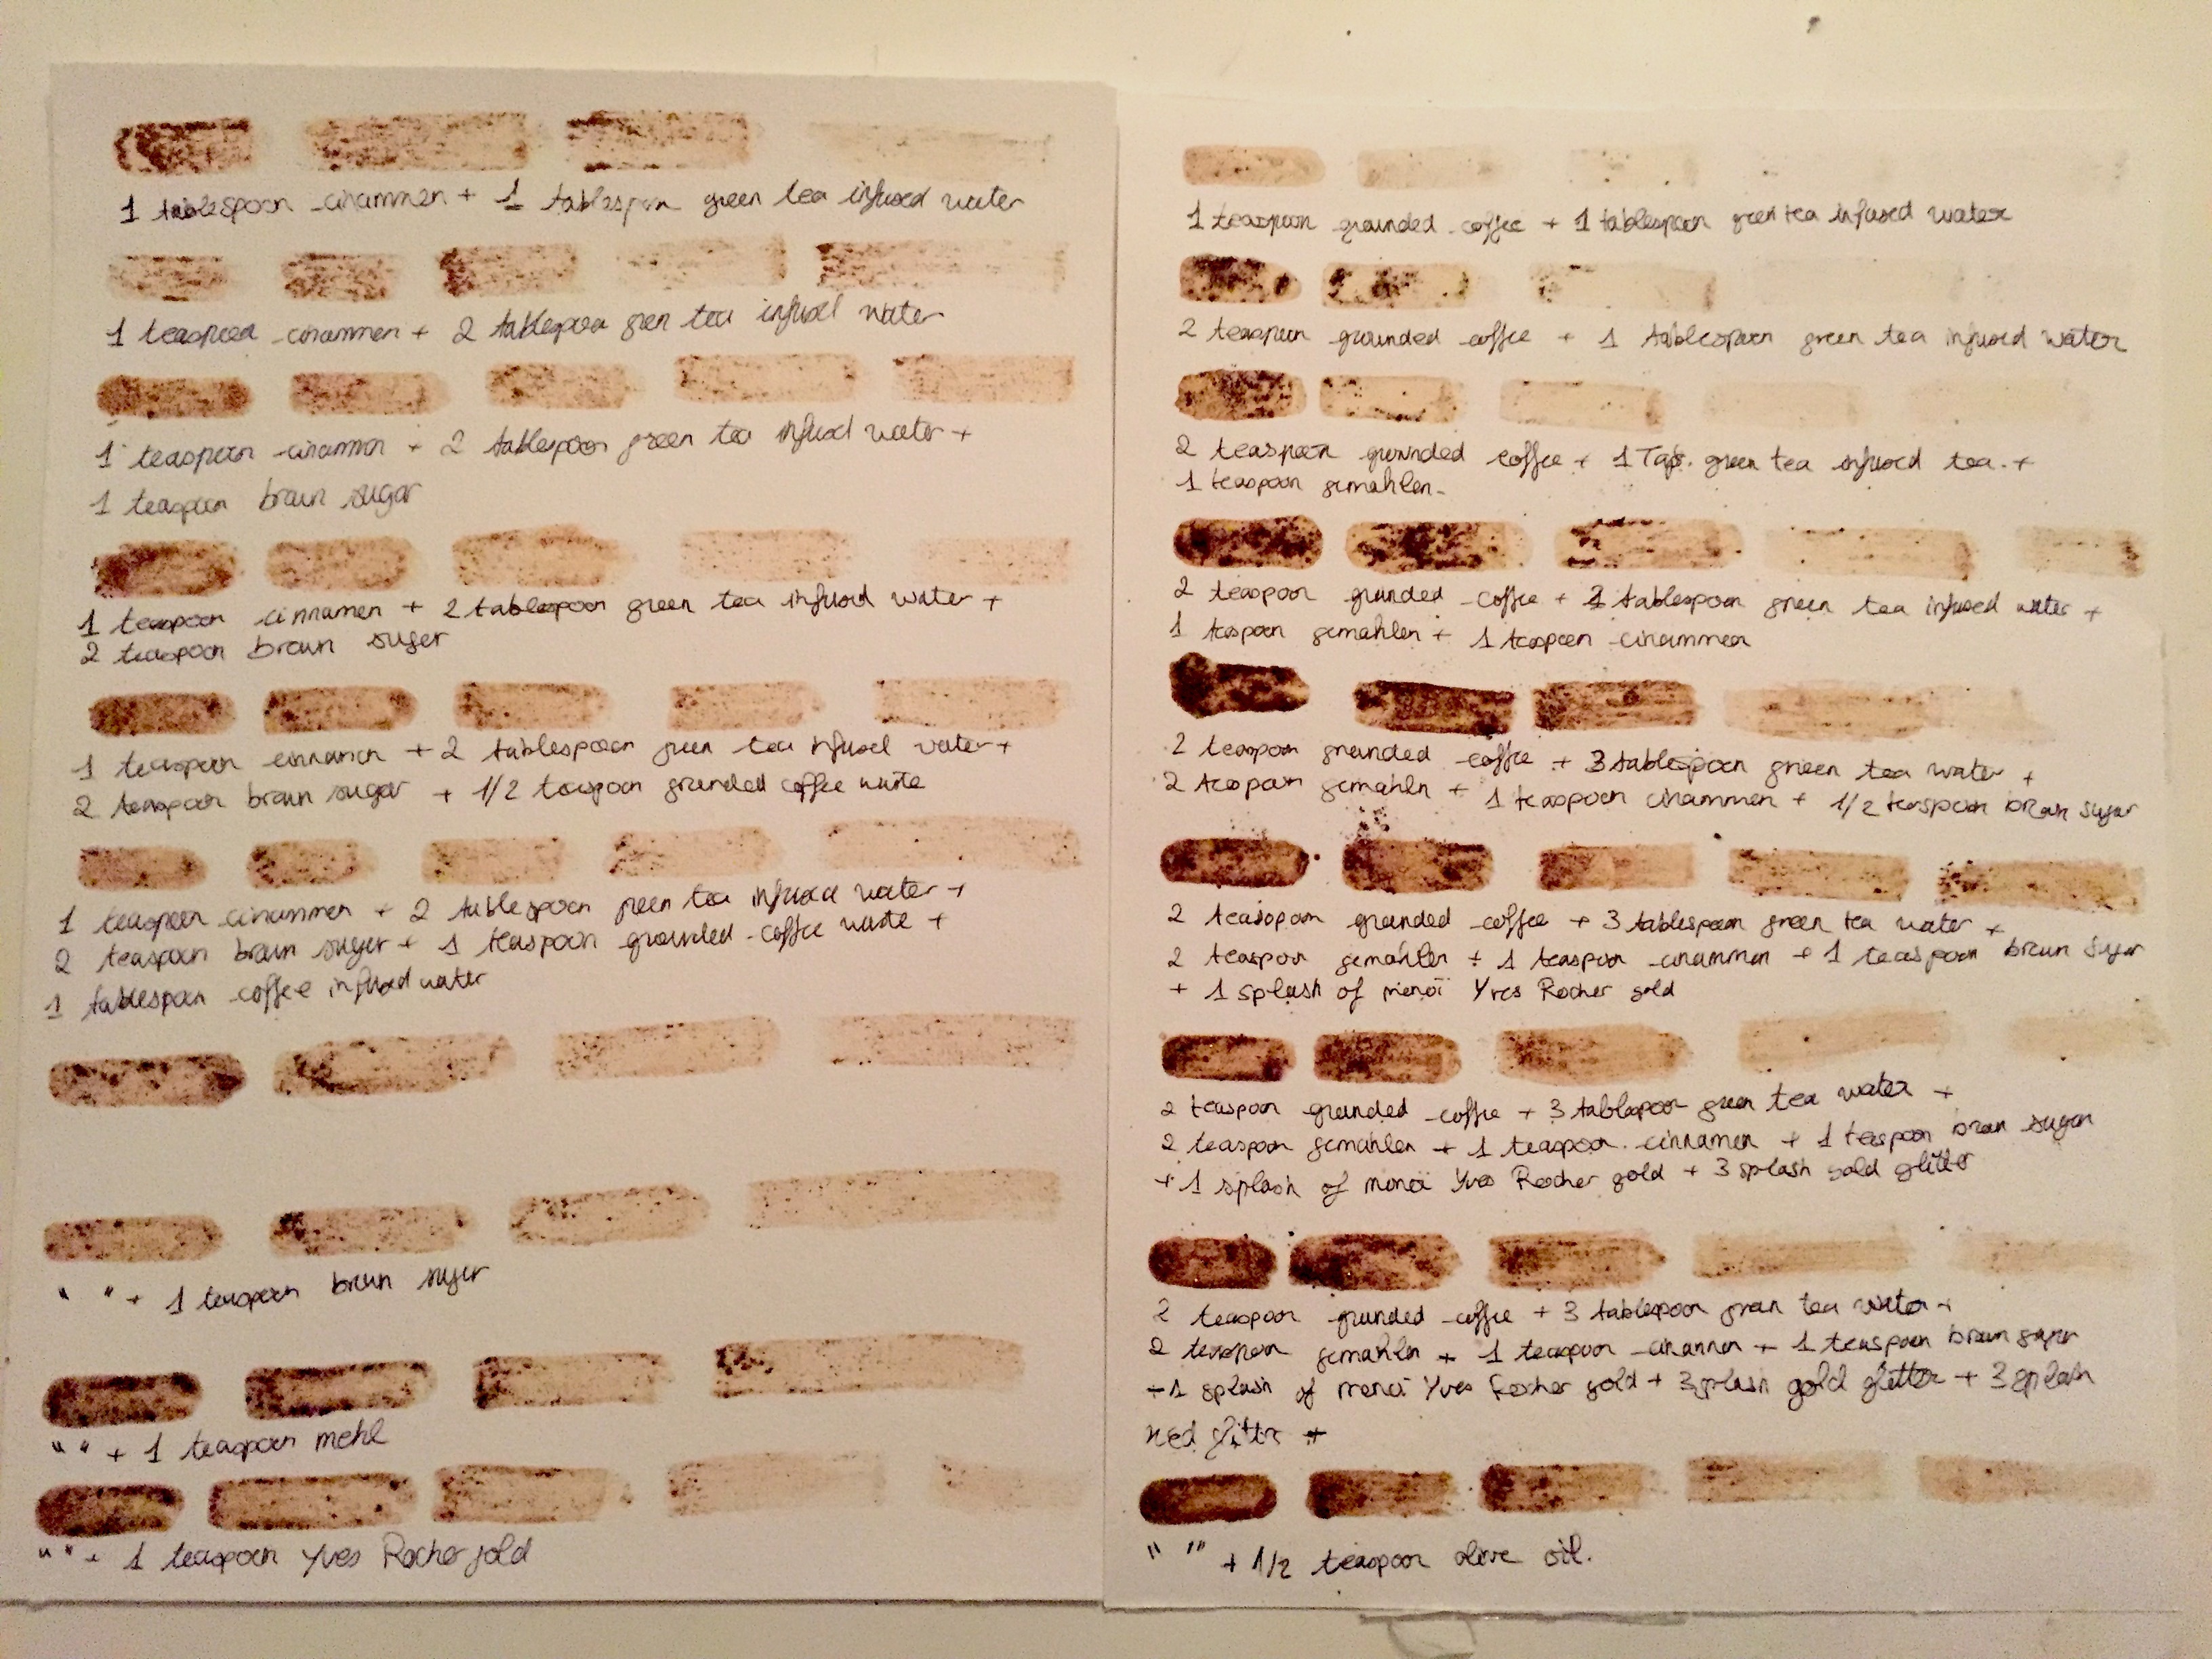 1 tablespoon cinammen + 1 tablespoon green tea infused water
1 teaspoon cinammen + 2 tablespoon green tea infused water
1 teaspoon cinammon + 2 tablespoon green tea infused water +
1 teaspoon braun sugar
1 teaspoon cinnamen + 2 tablespoon green tea infused water +
2 teaspoon braun suger
1 teaspoon cinnamon + 2 tablespoon green tea infused water +
2 teaspoon braun sugar + 1/2 teaspoon grounded coffee waste
1 teaspoon cinammen + 2 tablespoon green tea infused water +
2 teaspoon braun suger + 1 teaspoon grounded coffee waste +
1 tablespoon coffee infused water
" " + 1 teaspoon braun suger
" " + 1 teaspoon mehl
" " + 1 teaspoon Yves Rocher gold
1 teaspoon grounded coffee + 1 tablespoon green tea infused water
2 teaspoon grounded coffee + 1 tablespoon green tea infused water
2 teaspoon grounded coffee + 1 green tea infused tea. +
1 teaspoon gemahlen
2 teaspoon grunded coffee + tablespoon green tea infused water +
1 teaspoon gemahlen + 1 teaspoon cinammen
2 teaspoon grounded coffee + 3 tablespoon green tea water +
2 teaspoon gemahln + 1 teaspoon cinammen + 1/2 teaspoon braun sugar
2 teasopom grounded coffee + 3 tablespoon green tea water +
2 teaspoon gemahlen + 1 teaspoon cinammon + 1 teaspoon braun suger
+ 1 splash of monoï Yves Rocher gold
2 teaspoon grounded coffee + 3 tablespoon green tea water +
2 teaspoon gemahlen + 1 teaspoon. cinnamen + 1 teaspoon braun sugar
+ 1 splash of monoï Yves Rocher gold + 3 splash gold glitter
2 teaspoon grunded coffee + 3 tablespoon green tea water +
2 teaspoon gemahlen + 1 teaspoon cinammon + 1 teaspoon braun suger
+ 1 splash of monoï Yves Rocher gold + 3 splash gold glitter + 3 splash
red glittr +
" " + 1/2 teaspoon olive oil.